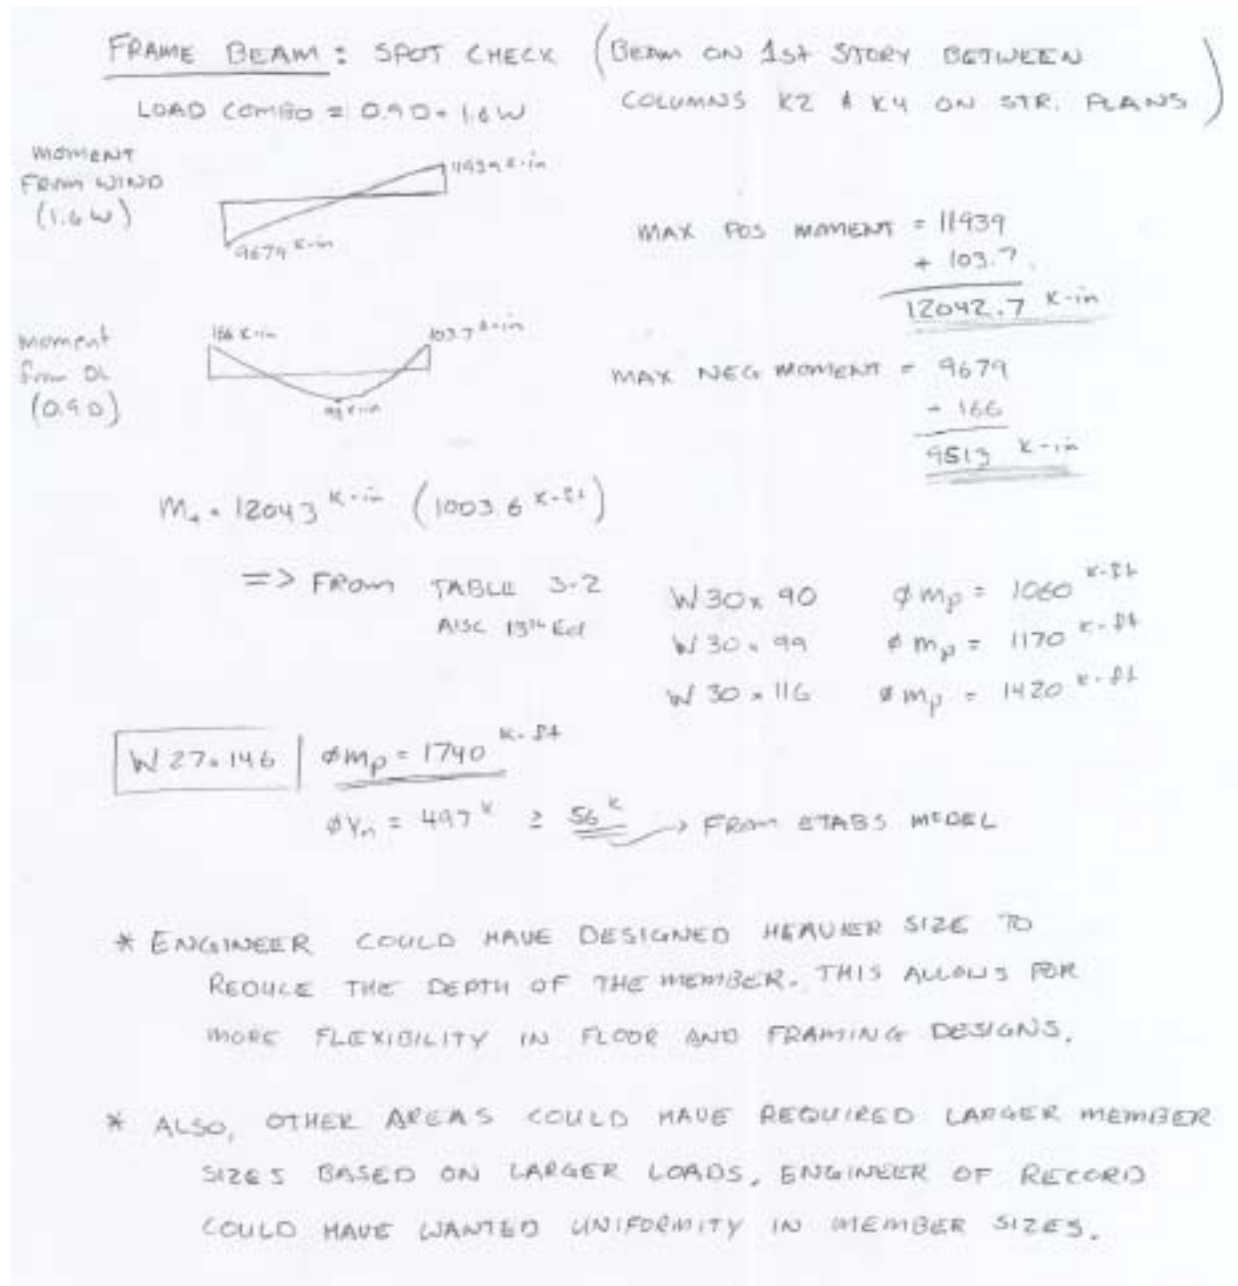 FRAME BEAM: SPOT CHECK (BEAM ON 1st STORY BETWEEN
COLUMNS K2 & K4 ON STR. PLANS)
LOAD COMBO = 0.9D + 1.6W
MOMENT
FROM WIND
(1.6W)
11939 K-in
9679 K-in
MAX POS MOMENT = 11939
+ 103.7
12042.7 K-in
Moment
from DL
(0.9D)
166 K-in
103.7 K-in
K-in
MAX NEG MOMENT = 9679
- 166
9513 K-in
M+ = 12043 K-in (1003.6 K-ft)
=> FROM TABLE 3-2
AISC 13th Ed
W30x90 φMp = 1060 K-ft
W30x99 φMp = 1170 K-ft
W30x116 φMp = 1420 K-ft
W27x146 φMp = 1740 K-ft
φVn = 497 K ≥ 56 K → FROM ETABS MODEL
* ENGINEER COULD HAVE DESIGNED HEAVIER SIZE TO
REDUCE THE DEPTH OF THE MEMBER. THIS ALLOWS FOR
MORE FLEXIBILITY IN FLOOR AND FRAMING DESIGNS.
* ALSO, OTHER AREAS COULD HAVE REQUIRED LARGER MEMBER
SIZES BASED ON LARGER LOADS. ENGINEER OF RECORD
COULD HAVE WANTED UNIFORMITY IN MEMBER SIZES.